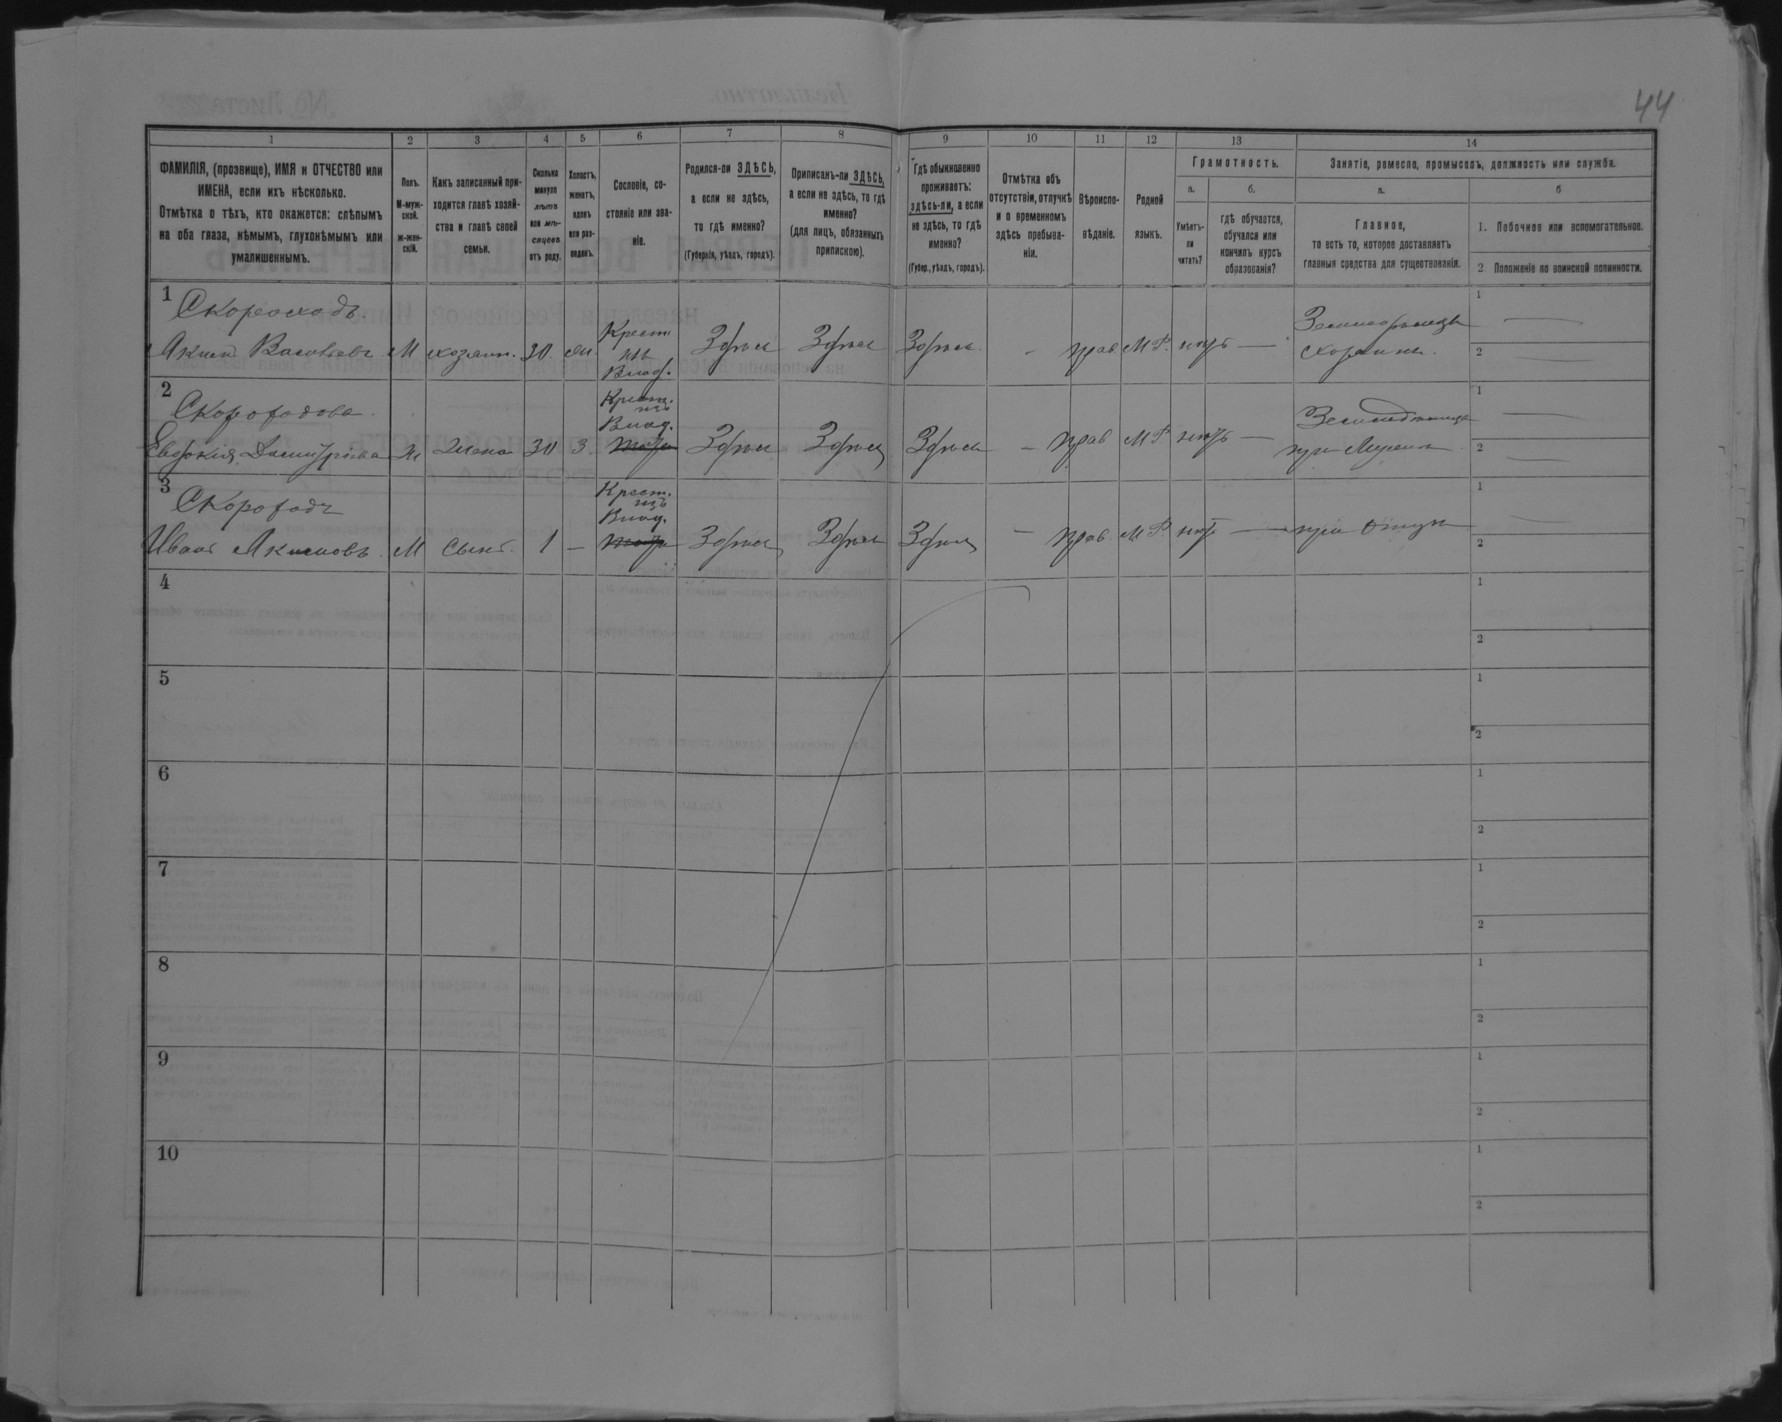 44
1 2 3 4 5 6 7 8 9 10 11 12 13 14
ФАМИЛІЯ, (прозвище), ИМЯ и ОТЧЕСТВО или
ИМЕНА, если ихъ нѣсколько.
Отмѣтка о тѣхъ, кто окажется: слѣпымъ
на оба глаза, нѣмымъ, глухонѣмымъ или
умалишеннымъ.
Полъ.
М-муж-
ской.
ж-жен-
скій.
Какъ записанный при-
ходится главѣ хозяй-
ства и главѣ своей
семьи.
Сколько
минуло
лѣтъ
или мѣ-
сяцевъ
отъ роду.
Холостъ,
женатъ,
вдовъ
или раз-
веденъ.
Сословіе, со-
стояніе или зва-
ніе.
Родился-ли ЗДѢСЬ,
а если не здѣсь,
то гдѣ именно?
(Губернія, уѣздъ, городъ).
Приписанъ-ли ЗДѢСЬ,
а если не здѣсь, то гдѣ
именно?
(для лицъ, обязанныхъ
припискою).
Гдѣ обыкновенно
проживаетъ:
здѣсь-ли, а если
не здѣсь, то гдѣ
именно?
(Губер., уѣздъ, городъ).
Отмѣтка объ
отсутствіи, отлучкѣ
и о временномъ
здѣсь пребыва-
ніи.
Вѣроиспо-
вѣданіе.
Родной
языкъ.
Грамотность.
а.
Умѣетъ-
ли
читать?
б.
гдѣ обучается,
обучался или
кончилъ курсъ
образованія?
Занятіе, ремесло, промыселъ, должность или служба.
а.
Главное,
то есть то, которое доставляетъ
главныя средства для существованія.
б
1. Побочное или вспомогательное.
2 Положеніе по воинской повинности.
1
Скороходъ.
Акимъ Васильевъ М хозяинъ. 30. жен. Крест. изъ Влад. Здѣсь Здѣсь Здѣсь - прав. М.Р. нѣтъ — Земледѣлецъ
хозяинъ.
1 —
2 —
2
Скороходова.
Евдокия Дмитріева Ж жена 30 З. Крест. изъ Влад. Здѣсь Здѣсь Здѣсь - прав М Р нѣтъ — Земледѣлица
при Мужѣ
1 —
2 —
3
Скороходъ
Иванъ Акимовъ. М сынъ. 1 — Крест. изъ Влад. Здѣсь Здѣсь Здѣсь — прав. М Р. нѣтъ — при Отцѣ
1 —
2
4
1
2
5
1
2
6
1
2
7
1
2
8
1
2
9
1
2
10
1
2